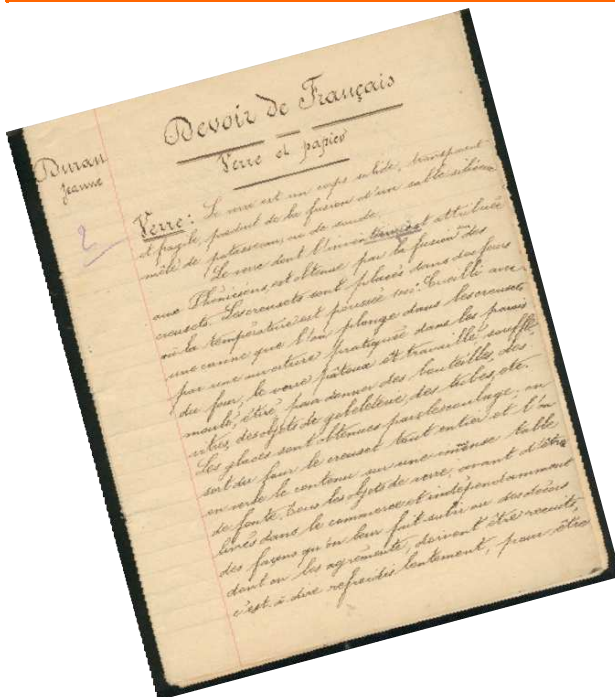 Devoir de Français
Verre et papier
Duran
Jeanne
2
Verre : Le verre est un corps solide, transparent
et fragile, produit de la fusion d'un sable siliceux
mêlé de potasse ou de soude.
Le verre dont l'invention est attribuée
aux Phéniciens, est obtenue par la fusion des
creusets. Les creusets sont placés dans des fours
où la température est poussée
une canne que l'on plonge dans les creusets
par une ouverture pratiquée dans les parois
du four, le verre pâteux et travaillé, soufflé
moulé, étiré, pour donner des bouteilles, des
vitres, des objets de gobeleterie des tubes, etc.
Les glaces sont obtenues par le moulage; on
sort du four le creuset tout entier et l'on
en verse le contenu sur une immense table
de fonte. Tous les objets de verre, avant d'être
livrés dans le commerce et indépendamment
des façons qu'on leur fait subir ou des décors
dont on les agrémente, doivent être recuits,
c'est-à-dire refroidis lentement, pour être